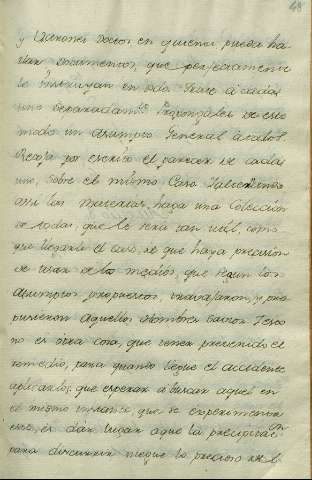 68
y Varones Doctos en quienes pueda ha-
llar documentos, que perfectamente
le instruyan en todo. Trate a cada
uno separadam.te Propongales de este
modo un asumpto General a todos.
Recoja por escrito el parecer de cada
uno, sobre el mismo Caso
assi los pareceres, haga una Coleccion
de todos, que le sera tan util, como
que llegado el caso, de que haya precision
de usar de los medios, que segun los
asumptos propuestos, trabajaron, y pro
pusieron aquellos Hombres savios. Pero
no es otra cosa, que tener prevenido el
remedio, para quando llegue el accidente
aplicarlo; que esperar a buscar aquel en
el mismo instante, que se experimenta
este, es dar lugar a que la precipitacion
para discurrir niegue lo preciso